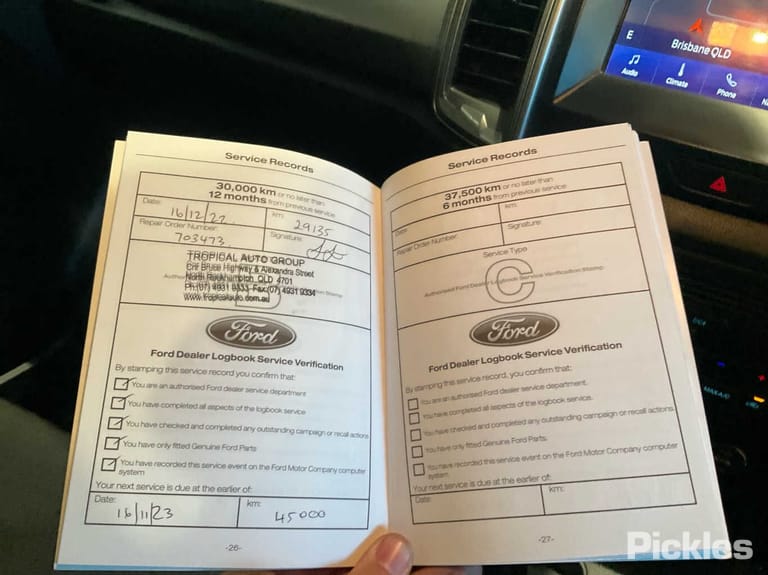 E
Brisbane QLD
Audio
Climate
Phone
Service Records
30,000 km or no later than
12 months from previous service
Date:
16/12/22
km:
29135
Repair Order Number:
703473
Signature:
TROPICAL AUTO GROUP
Cnr Bruce Highway & Alexandra Street
North Rockhampton QLD 4701
Ph:(07) 4931 9333 Fax:(07) 4931 9334
www.tropicalauto.com.au
Ford
Ford Dealer Logbook Service Verification
By stamping this service record, you confirm that:
You are an authorised Ford dealer service department
You have completed all aspects of the logbook service
You have checked and completed any outstanding campaign or recall actions
You have only fitted Genuine Ford Parts
You have recorded this service event on the Ford Motor Company computer
system
Your next service is due at the earlier of:
Date:
16/11/23
km:
45000
-26-
Service Records
37,500 km or no later than
6 months from previous service
Date:
km:
Repair Order Number:
Signature:
Service Type
Authorised Ford Dealer Logbook Service Verification Stamp
C
Ford
Ford Dealer Logbook Service Verification
By stamping this service record, you confirm that:
You are an authorised Ford dealer service department.
You have completed all aspects of the logbook service.
You have checked and completed any outstanding campaign or recall actions.
You have only fitted Genuine Ford Parts
You have recorded this service event on the Ford Motor Company computer
system
Your next service is due at the earlier of:
Date:
km:
-27-
MAX A/C
Pickles